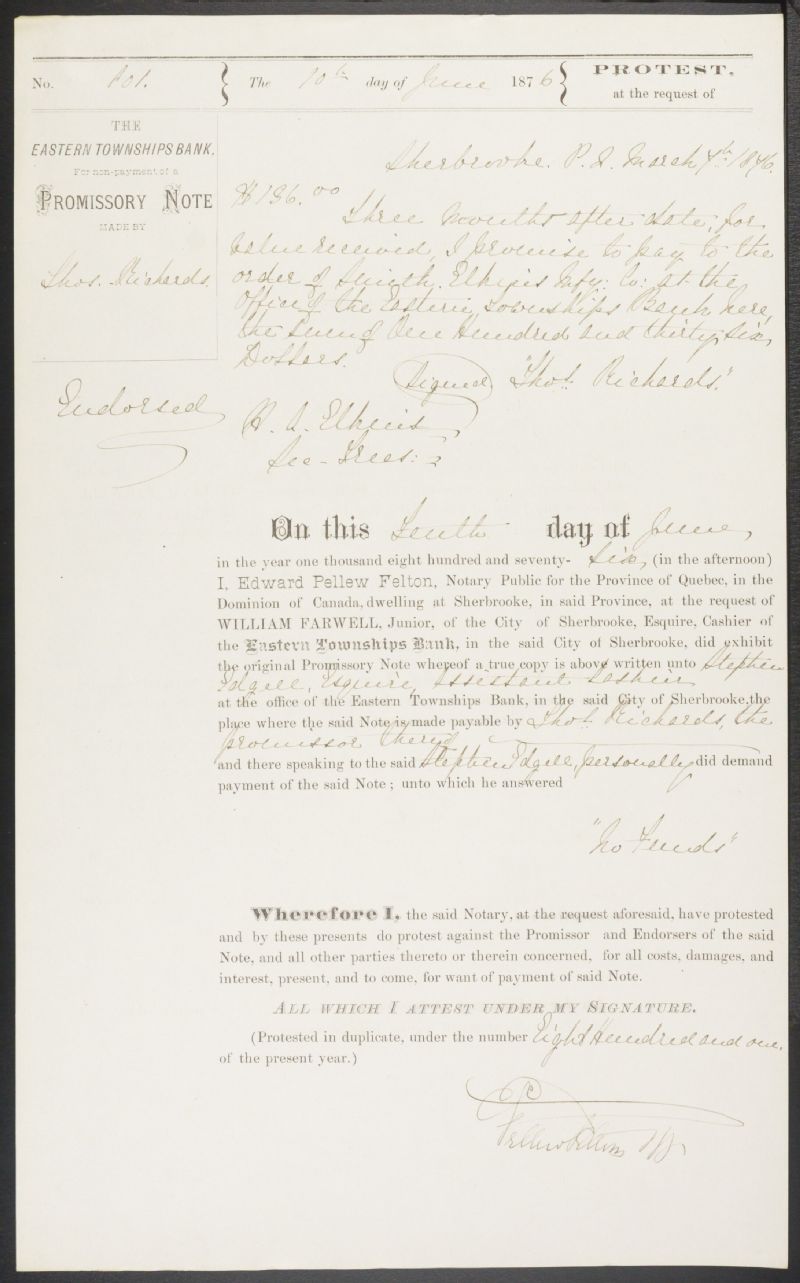 No. 801. The 10th day of June 1876 PROTEST,
at the request of
THE
EASTERN TOWNSHIPS BANK.
For non-payment of a
PROMISSORY NOTE
MADE BY
Thos. Richards.
Sherbrooke. P. Q. March 7th 1876.
$136.00
Three Months after date, for
value received, I promise to pay to the
order of Smith, Elkins Mfg: Co: at the
Office of the Eastern Townships Bank, here,
the Sum of One Hundred and thirty, six,
Dollars.
(Signed) "Thos. Richards."
Endorsed
H. A. Elkins
Sec-Treas:
On this Tenth day of June,
in the year one thousand eight hundred and seventy- Six, (in the afternoon)
I, Edward Pellew Felton, Notary Public for the Province of Quebec, in the
Dominion of Canada, dwelling at Sherbrooke, in said Province, at the request of
WILLIAM FARWELL, Junior, of the City of Sherbrooke, Esquire, Cashier of
the Eastern Townships Bank, in the said City of Sherbrooke, did exhibit
the original Promissory Note whereof a true copy is above written unto Stephen
Edgell, Esquire, Assistant Cashier
at the office of the Eastern Townships Bank, in the said City of Sherbrooke, the
place where the said Note is made payable by Thos. Richards, the
promissor thereof
and there speaking to the said Stephen Edgell, personally did demand
payment of the said Note ; unto which he answered
"No Funds"
Wherefore I, the said Notary, at the request aforesaid, have protested
and by these presents do protest against the Promissor and Endorsers of the said
Note, and all other parties thereto or therein concerned, for all costs, damages, and
interest, present, and to come, for want of payment of said Note.
ALL WHICH I ATTEST UNDER MY SIGNATURE.
(Protested in duplicate, under the number Eight Hundred and one,
of the present year.)
Pellew Felton NP